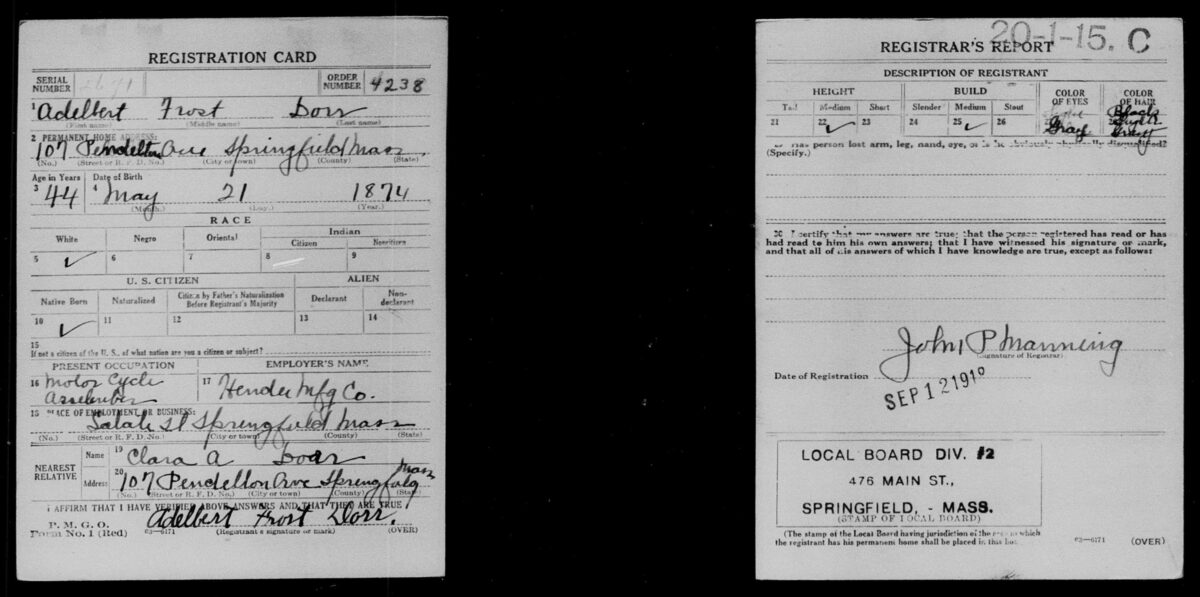 REGISTRATION CARD
SERIAL NUMBER 2671 ORDER NUMBER 4238
1 Adelbert Frost Dorr
(First name) (Middle name) (Last name)
2 PERMANENT HOME ADDRESS:
107 Pendelton Ave Springfield Mass
(No.) (Street or R. F. D. No.) (City or town) (County) (State)
Age in Years Date of Birth
3 44 4 May 21 1874
(Month.) (Day.) (Year.)
RACE
White Negro Oriental Indian
Citizen Noncitizen
5 ✓ 6 7 8 9
U. S. CITIZEN ALIEN
Native Born Naturalized Citizen by Father's Naturalization Before Registrant's Majority Declarant Non-declarant
10 ✓ 11 12 13 14
15
If not a citizen of the U. S., of what nation are you a citizen or subject?
PRESENT OCCUPATION EMPLOYER'S NAME
16 Motor Cycle 17 Hendee Mfg Co.
Assembler
18 PLACE OF EMPLOYMENT OR BUSINESS:
St Springfield Mass
(No.) (Street or R. F. D. No.) (City or town) (County) (State)
NEAREST RELATIVE Name 19 Clara A Dorr
Address 20 107 Pendelton Ave Springfield Mass
(No.) (Street or R. F. D. No.) (City or town) (County) (State)
I AFFIRM THAT I HAVE VERIFIED ABOVE ANSWERS AND THAT THEY ARE TRUE
P. M. G. O. Adelbert Frost Dorr.
Form No. 1 (Red) 03—6171 (Registrant's signature or mark) (OVER)
20-1-15. C
REGISTRAR'S REPORT
DESCRIPTION OF REGISTRANT
HEIGHT BUILD COLOR OF EYES COLOR OF HAIR
Tall Medium Short Slender Medium Stout
21 22 ✓ 23 24 25 ✓ 26 Gray Black
Gray
Has person lost arm, leg, hand, eye, or is he obviously physically disqualified?
(Specify.)
30 I certify that my answers are true; that the person registered has read or has
had read to him his own answers; that I have witnessed his signature or mark,
and that all of his answers of which I have knowledge are true, except as follows:
John P Manning
(Signature of Registrar)
Date of Registration
SEP 12 1918
LOCAL BOARD DIV. #2
476 MAIN ST.,
SPRINGFIELD, - MASS.
(STAMP OF LOCAL BOARD)
(The stamp of the Local Board having jurisdiction of the area in which
the registrant has his permanent home shall be placed in this box.) 03—6171 (OVER)